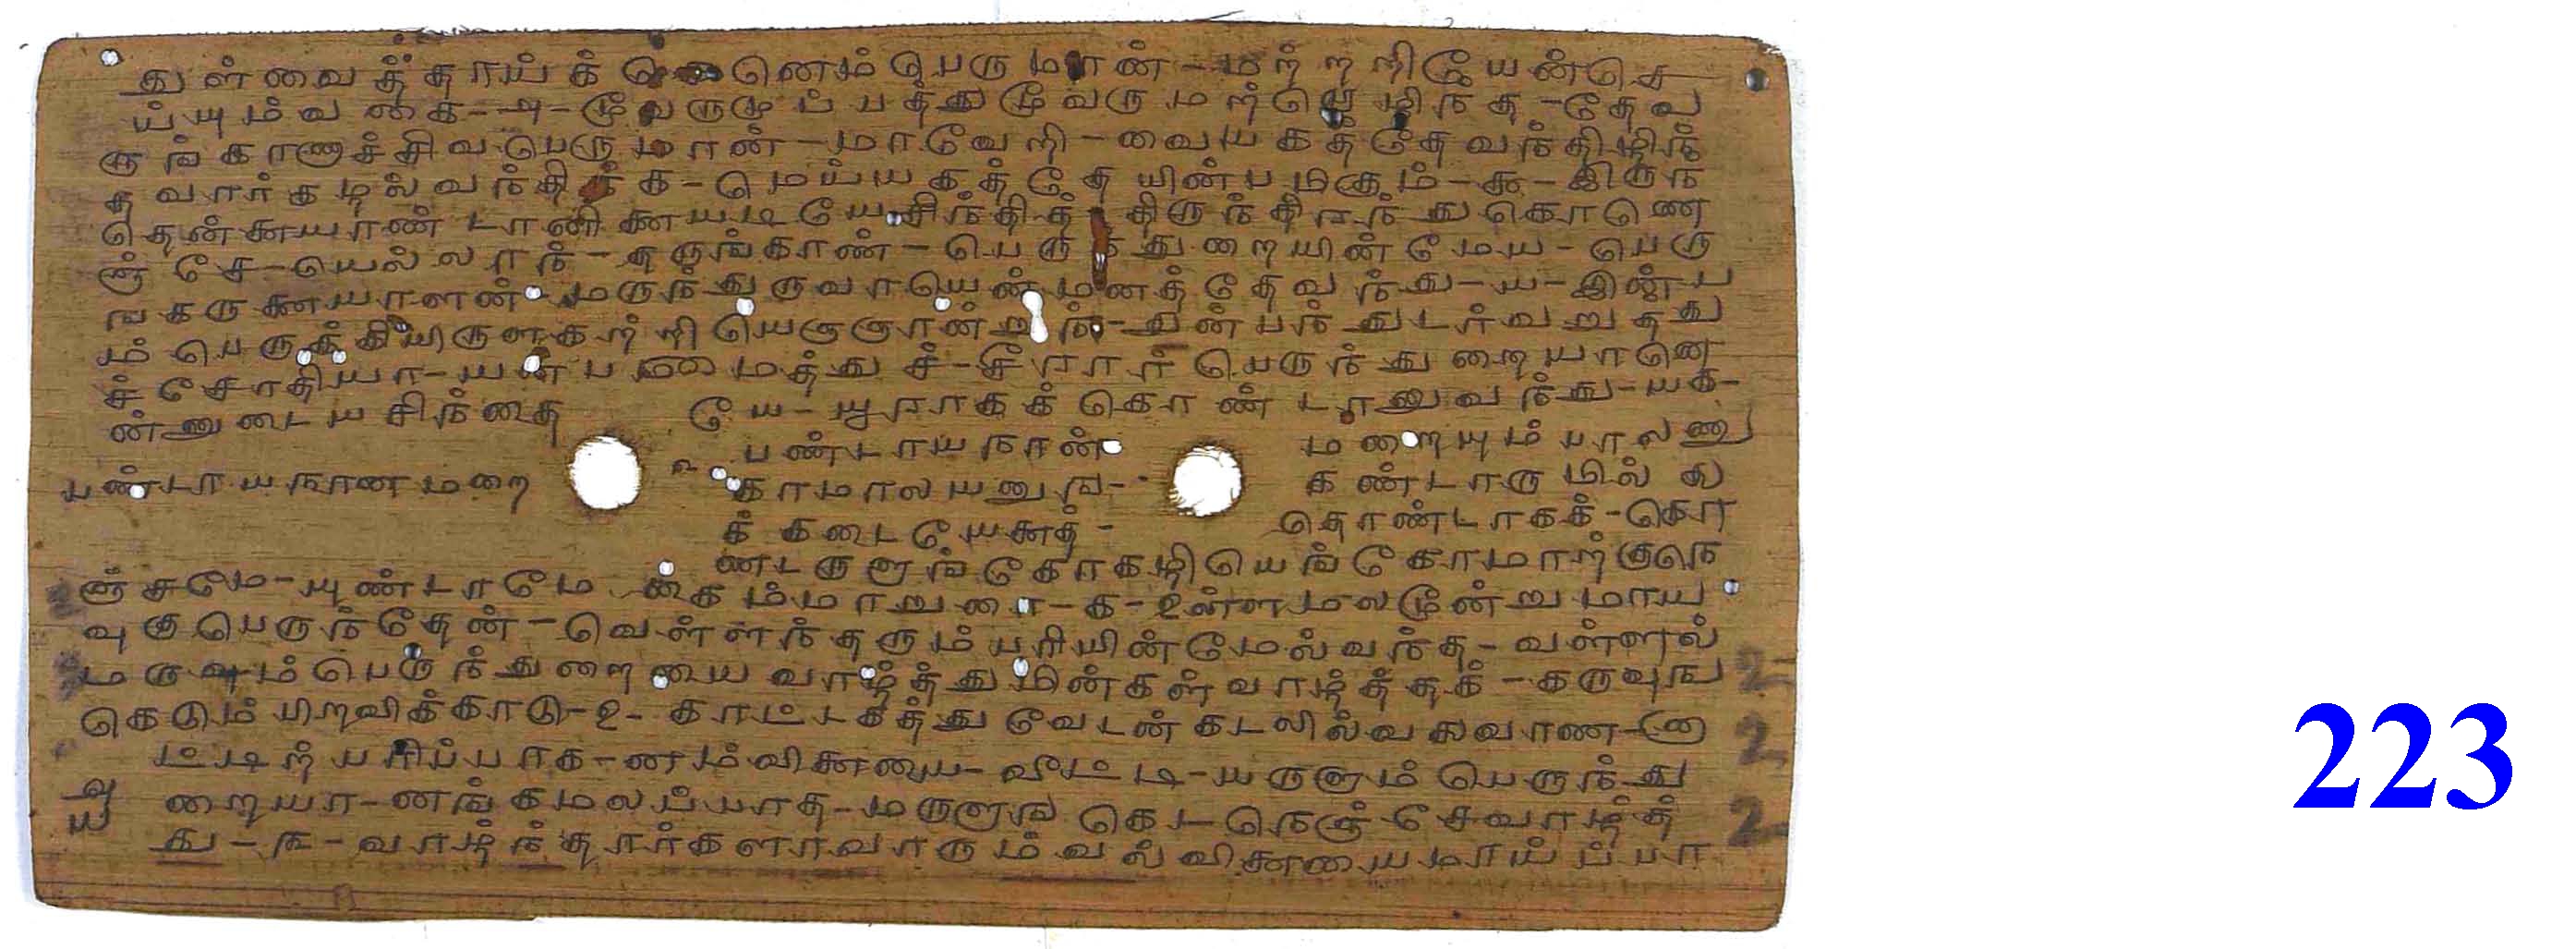 துள்வைத்தாய்க் னெம்பெருமான்-மற்றறியேன்செ
ய்யும்வகை-அ-மூவருமுப்பத்துமூவருமற்றெழிந்த-தேவ
ருங்காணாச்சிவபெருமான்-மாவேறி-வையகத்தேவந்திழிந்
தவார்கழல்வந்திக்க-மெய்யகத்தேயின்பமிகும்-கூ-இருந
தென்னையாண்டானிணையடியேசிந்தித் திருந்திரந்துகொணெ
ஞ்சே-யெல்லாந்-தருங்காண்-பெருந்துறையின்மேய-பெரு
ங்கருணையாளன்-மருந்துருவாயென்மனத்தேவந்து-ய-இன்ப
ம்பெருக்கியிருளகற்றியெஞ்ஞான்றுந்-துன்பந்துடர்வறுத்து
ச்சோதியா-யன்பமைத்துச்-சீரார்பெருந்துறையானெ
ன்னுடையசிந்தை யே-யூராகக்கொண்டானுவந்து-யக-
பண்டாயநான் மறையும்பாலணு
பண்டாயநான்மறை ௩ காமாலயனுங்- கண்டாருமில் க
க்கடையேனைத்- தொண்டாகக்-கொ
ண்டருளுங்கோகழியெங்கோமாற்குநெ
ஞ்சமே-யுண்டாமோ கைம்மாறுரை-க-உள்ளமலமூன்றுமாய
வுகுபெருந்தேன்-வெள்ளந்தரும்பரியின்மேல்வந்த-வள்ளல்
மருவும்பெருந்துறையை வாழ்த்துமின்கள்வாழ்த்தக்-கருவுங
கெடும்பிறவிக்காடு-உ-காட்டகத்துவேடன்கடலில்வலைவாணன்-நா
ட்டிற்பரிப்பாக-னம்வினையை-வீட்டி-யருளும்பெருந்து
றையா-னங்கமலப்பாத-மருளுங கெடநெஞ்சேவாழ்த்
து-௩-வாழ்ந்தார்களாவாரும்வல்வினையைமாய்ப்பா
அ
ய
2
2
2
223